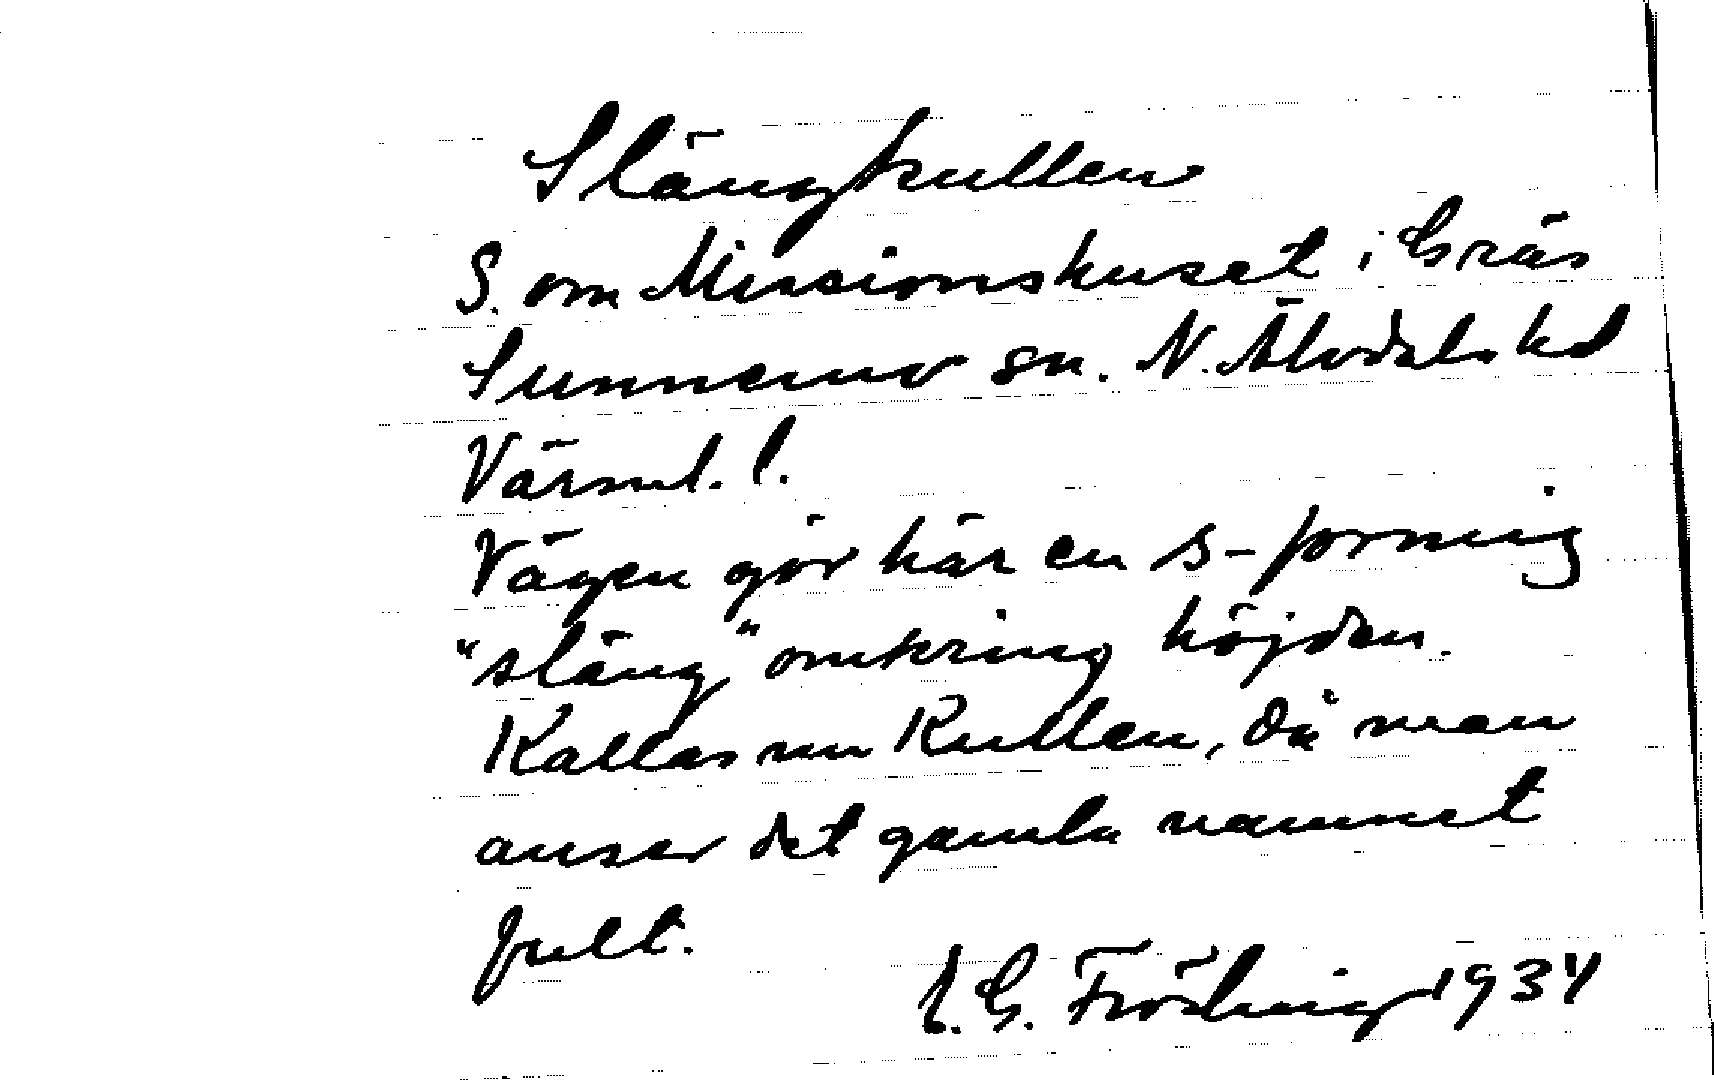 Slängkullen
S. om Missionshuset i Gräs
Sunnemo sn. N. Älvdals hd
Värml. l.
Vägen gör här en s-forming
"släng" omkring höjden.
Kallas nu Kullen, då man
anser det gamla namnet
fult.
E. G. Fröding 1934